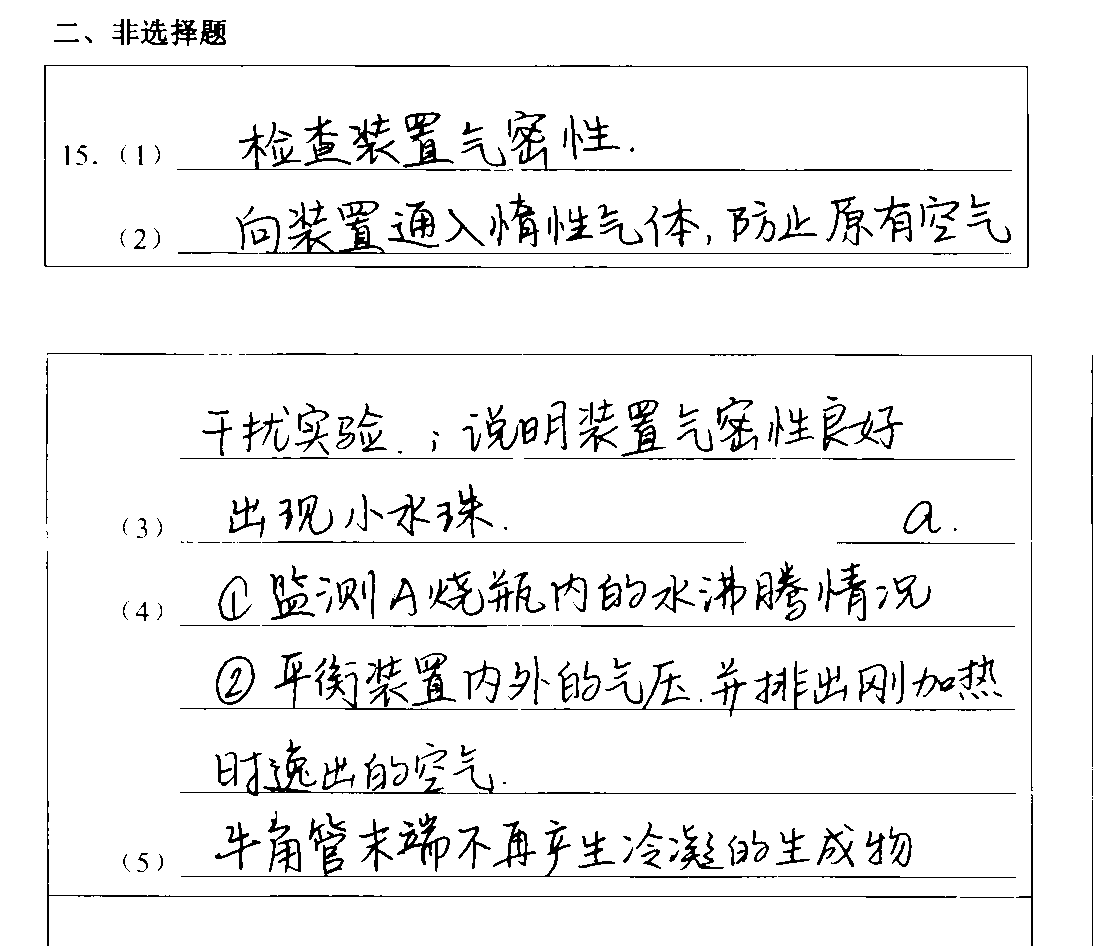 二、非选择题
15.（1） 检查装置气密性.
（2） 向装置通入惰性气体,防止原有空气
干扰实验.；说明装置气密性良好
（3） 出现小水珠. a.
（4） ①监测A烧瓶内的水沸腾情况
②平衡装置内外的气压.并排出刚加热
时逸出的空气.
（5） 牛角管末端不再产生冷凝的生成物